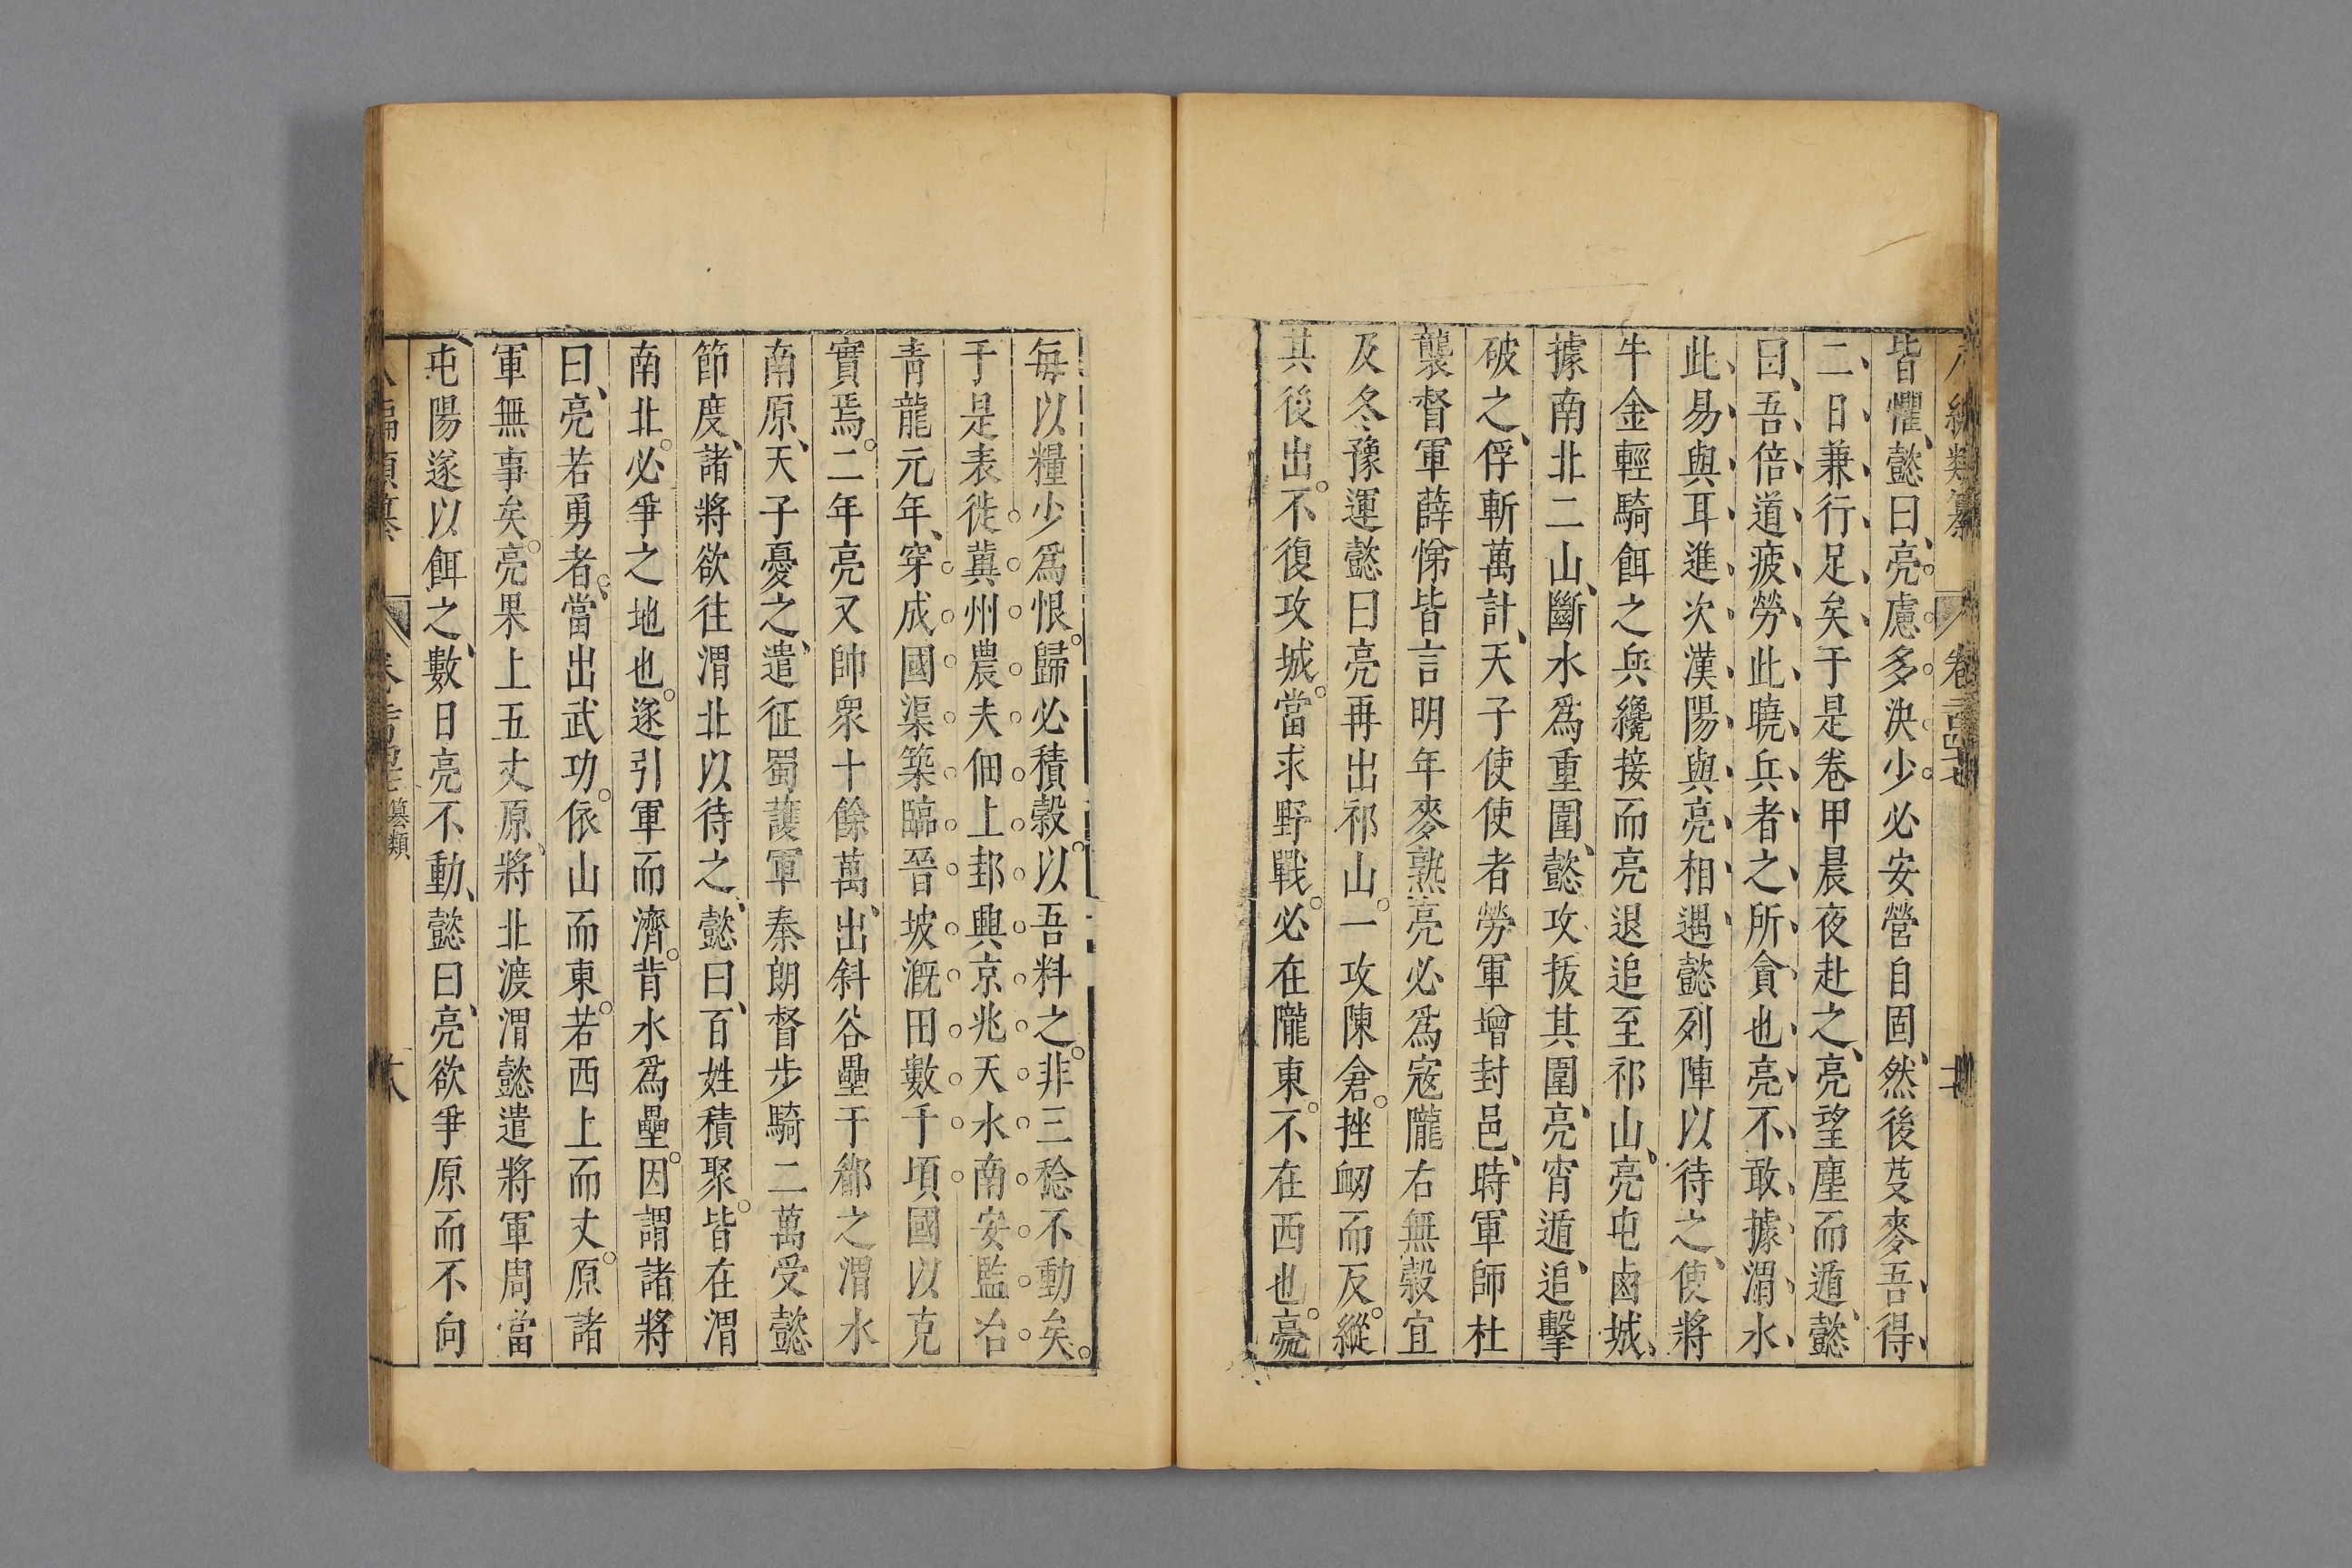 皆懼懿曰亮慮多決少必安營自固然後芟麥吾得
二日兼行足矣于是卷甲晨夜赴之亮望塵而遁懿
曰吾倍道疲勞此曉兵者之所貪也亮不敢據渭水
此易與耳進次漢陽與亮相遇懿列陣以待之使將
牛金輕騎餌之兵纔接而亮退追至祁山亮屯鹵城
據南北二山斷水爲重圍懿攻拔其圍亮宵遁追擊
破之俘斬萬計天子使使者勞軍增封邑時軍師杜
襲督軍薛悌皆言明年麥熟亮必爲寇隴右無穀宜
及冬豫運懿曰亮再出祁山一攻陳倉挫衂而反縱
其後出不復攻城當求野戰必在隴東不在西也亮
每以糧少爲恨歸必積穀以吾料之非三稔不動矣
于是表徙冀州農夫佃上邽興京兆天水南安監冶
青龍元年穿成國渠築臨晉坡漑田數千頃國以克
實焉二年亮又帥衆十餘萬出斜谷壘于郿之渭水
南原天子憂之遣征蜀護軍秦朗督步騎二萬受懿
節度諸將欲往渭北以待之懿曰百姓積聚皆在渭
南北必爭之地也遂引軍而濟背水爲壘因謂諸將
曰亮若勇者當出武功依山而東若西上而丈原諸
軍無事矣亮果上五丈原將北渡渭懿遣將軍周當
屯陽遂以餌之數日亮不動懿曰亮欲爭原而不向